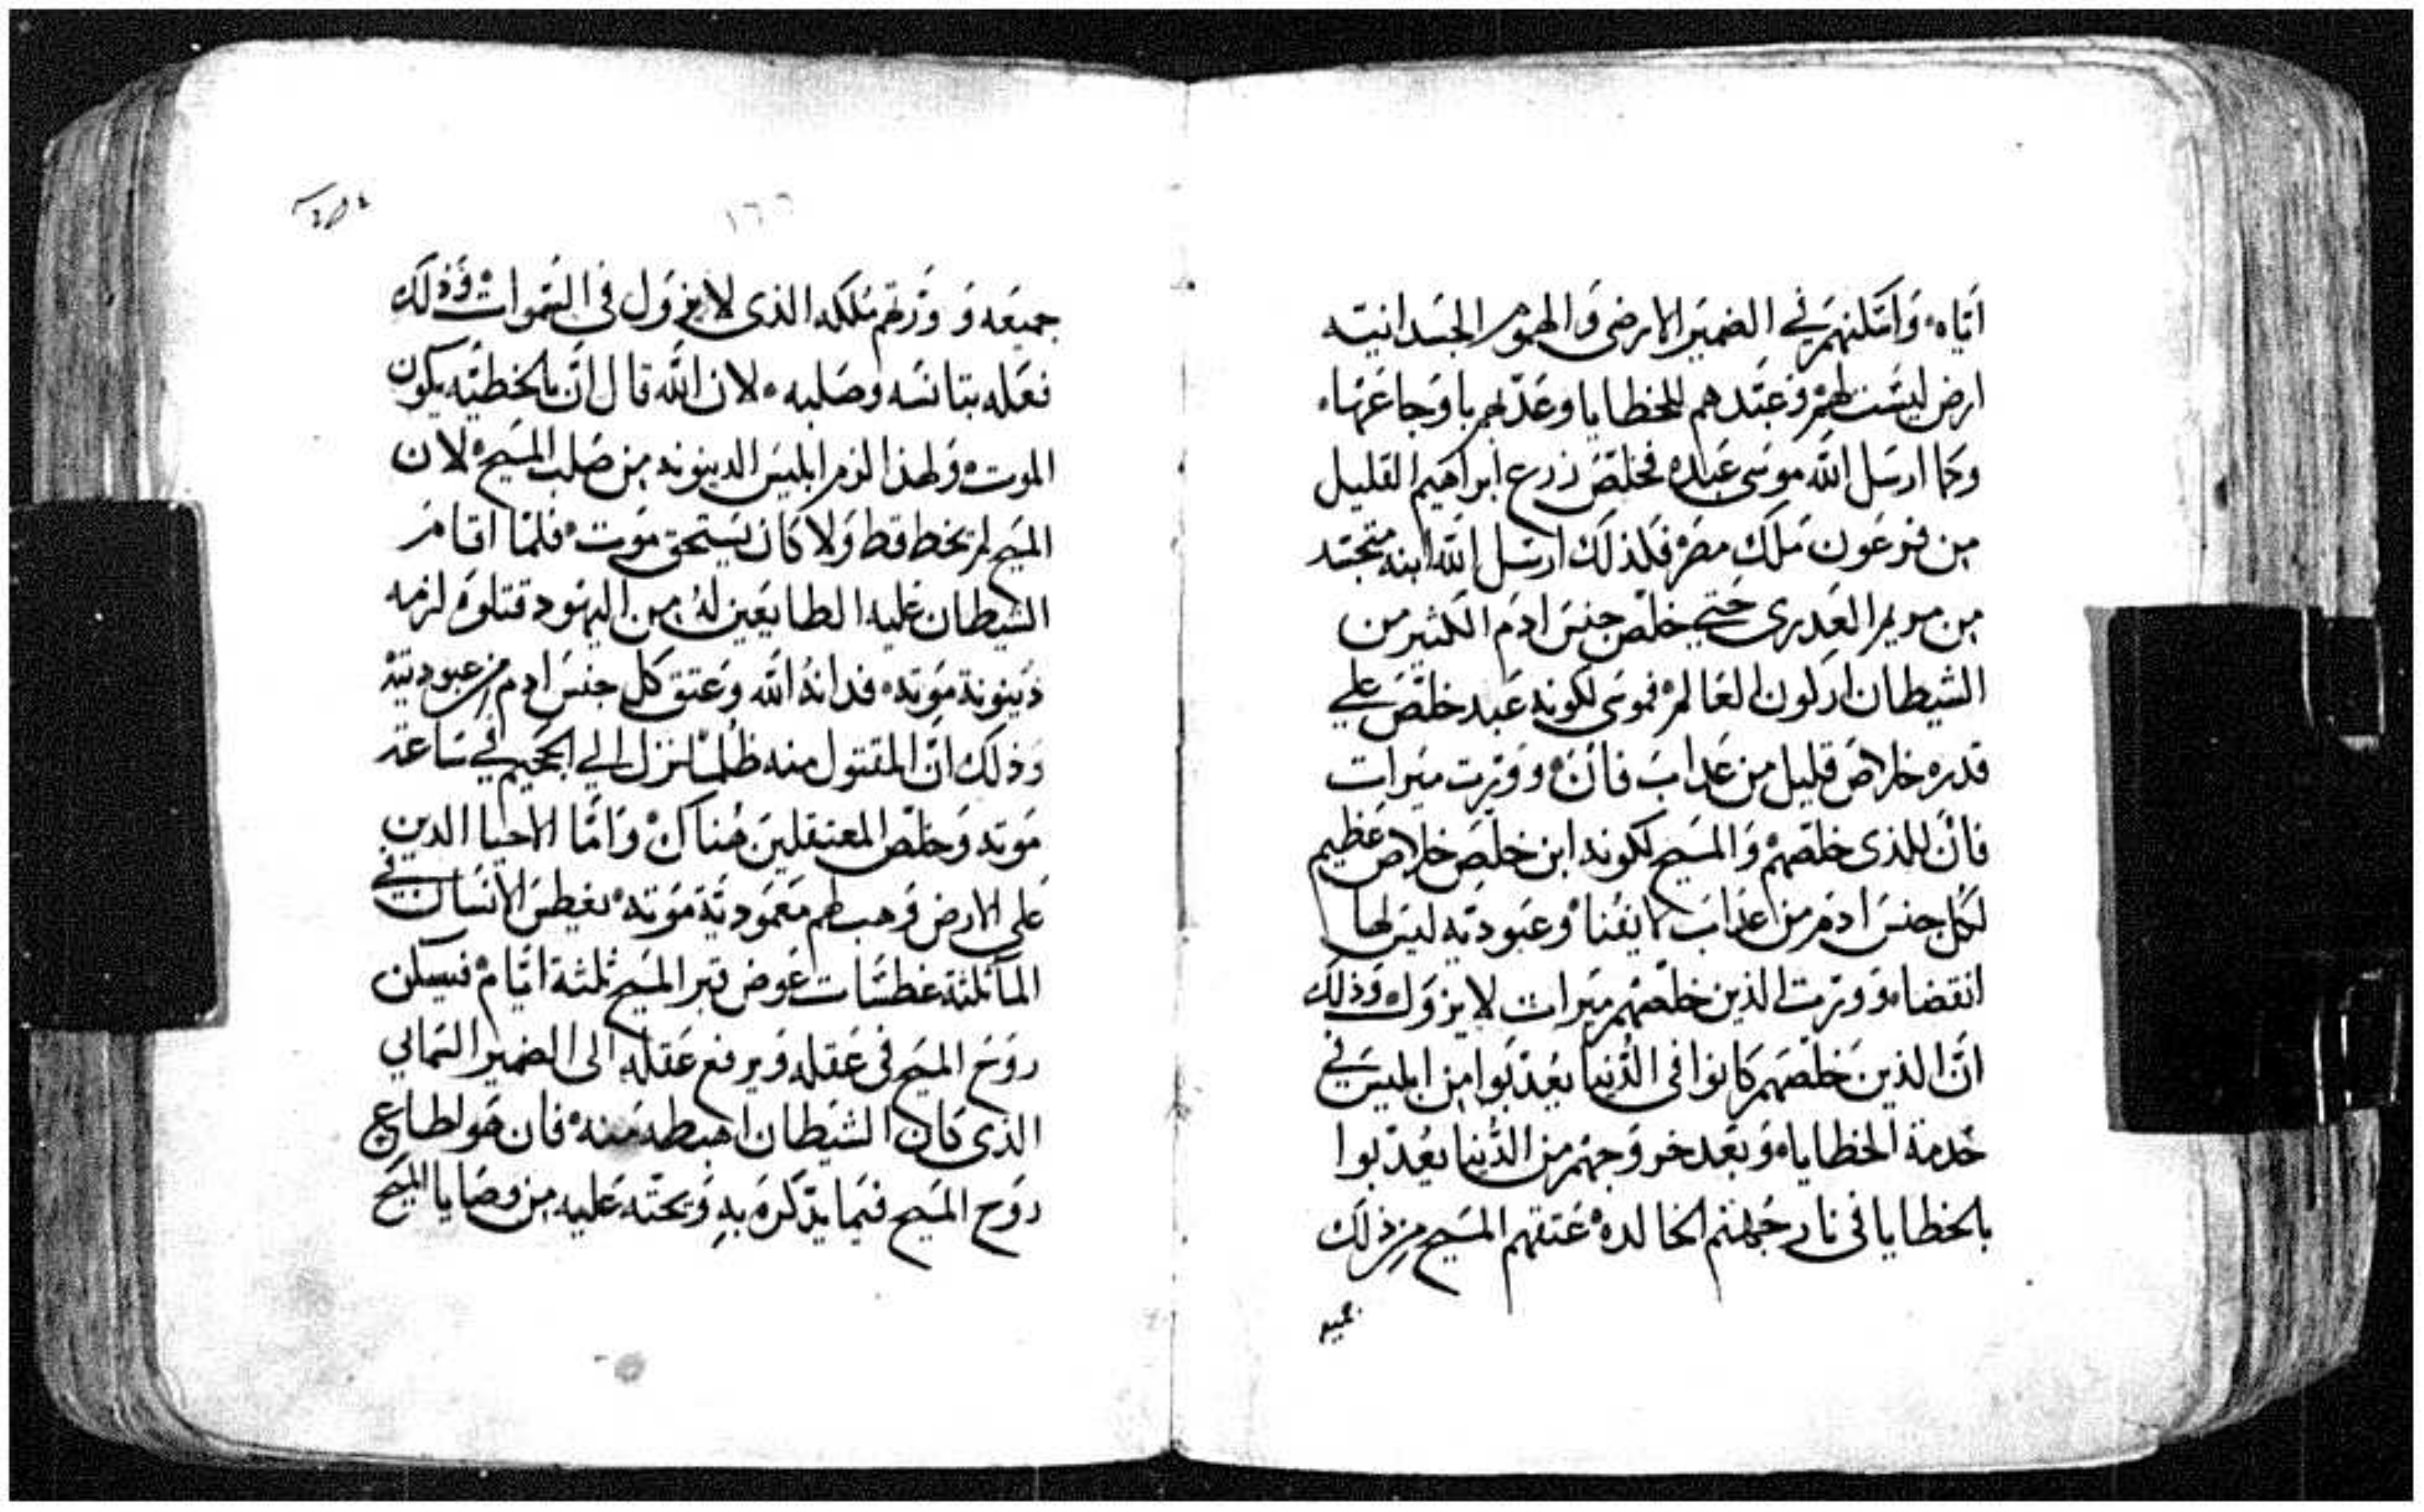 اياه وامكنهم في الضمير الارضي والهموم الجسدانيته
ارض ليست لهم وعبدهم للخطايا وعذبهم باوجاعها
وكما ارسل الله موسى عبده فخلص زرع ابراهيم القليل
من فرعون ملك مصر فلذلك ارسل الله ابنه متجسد
من مريم العدرى حتى خلص جنس ادم الكثير من
الشيطان اركون العالم فموسى لكونه عبد خلص على
قدره خلاص قليل من عداب فان وورت ميرات
فان للذى خلصهم والمسيح لكونه ابن خلص خلاص عظيم
لكل جنس ادم من عداب لا يفنا وعبوديه ليس لها
انقضاء وورت الذين خلصهم ميرات لا يزول وذلك
ان الذين خلصهم كانوا في الدنيا يعذبوا من ابليس في
خدمة الخطاياه وبعد خروجهم من الدنيا يعذبوا
بالخطايا في نار جهنم الخالده عتقهم المسيح من ذلك
جميعه
١٦٦
جميعه و ورتهم ملكه الذى لا يزول في السموات وذلك
فعله بتانسه وصلبه لان الله قال ان بالخطيه يكون
الموت ولهذا لزم ابليس الدينونه من صلب المسيح لان
المسيح لم يخط قط ولا كان يستحق موت فلما اقام
الشيطان عليه الطايعين له من اليهود قتلوه لزمه
دينونة موته فدانه الله وعتق كل جنس ادم من عبوديته
وذلك ان المقتول منه ظلما نزل الي الجحيم في ساعة
موته وخلص المعتقلين هناك واما الاحيا الدين
على الارض وهب لهم معمودية موته يغطس الانسان في
الما ثلثة غطسات عوض قبر المسيح ثلثة ايام فيسكن
روح المسيح في عقله ويرفع عقله الى الضمير السمايي
الذى كان الشيطان اهبطه منه فان هو لطاع
روح المسيح فيما يذكره به ويحثه عليه من وصايا المسيح